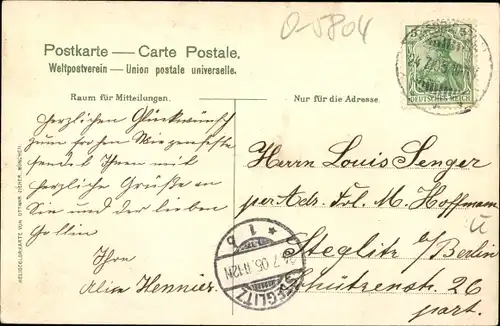 0-5804
Postkarte — Carte Postale.
Weltpostverein — Union postale universelle.
Raum für Mitteilungen.
Nur für die Adresse.
DEUTSCHES REICH
Herzlichen Glückwünsch
zum frohen Wiegenfeste
sendet Ihnen mit
herzliche Grüße an
Sie und der lieben
Ihre
Alice Hennier
Herrn Louis Senger
per Adr. Frl. M. Hoffmann
Steglitz b/Berlin
Schützenstr. 26
part.
* 1 b
7.06.11-12N
STEGLITZ
HELIOCOLORKARTE VON OTTMAR ZIEHER, MÜNCHEN.